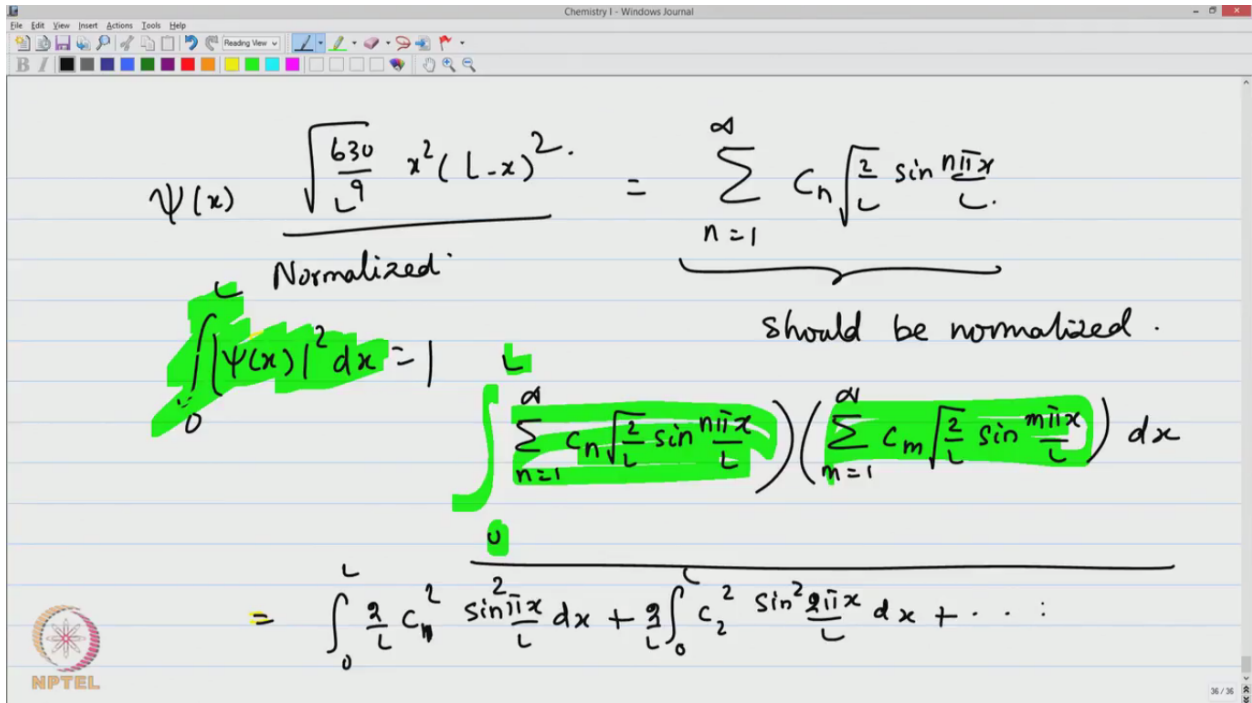 Chemistry I - Windows Journal
File Edit View Insert Actions Tools Help
Reading View
B I
ψ(x) √(630/L⁹) x²(L-x)². = ∞ Σ n=1 Cₙ √(2/L) sin nπx/L.
Normalized.
should be normalized.
∫₀ᴸ |ψ(x)|² dx = 1
∫₀ᴸ ∞ Σ n=1 cₙ √(2/L) sin nπx/L ) ( ∞ Σ m=1 cₘ √(2/L) sin mπx/L ) dx
= ∫₀ᴸ 2/L c₁² sin² πx/L dx + 2/L ∫₀ᴸ c₂² sin² 2πx/L dx + · · · :
NPTEL
36 / 36